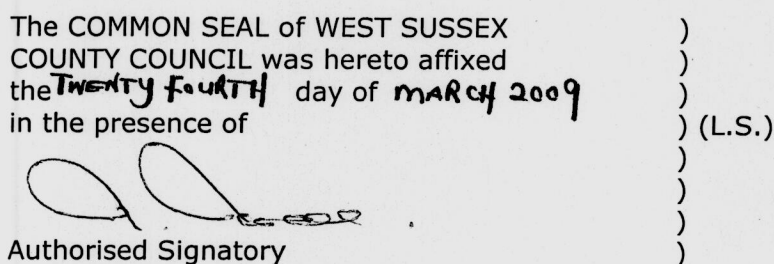 The COMMON SEAL of WEST SUSSEX )
COUNTY COUNCIL was hereto affixed )
the TWENTY FOURTH day of MARCH 2009 )
in the presence of ) (L.S.)
)
)
)
Authorised Signatory )